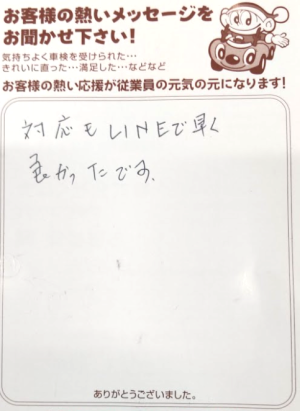 お客様の熱いメッセージを
お聞かせ下さい！
気持ちよく車検を受けられた…
きれいに直った…満足した…などなど
お客様の熱い応援が従業員の元気の元になります！
対応もLINEで早く
良かったです。
ありがとうございました。